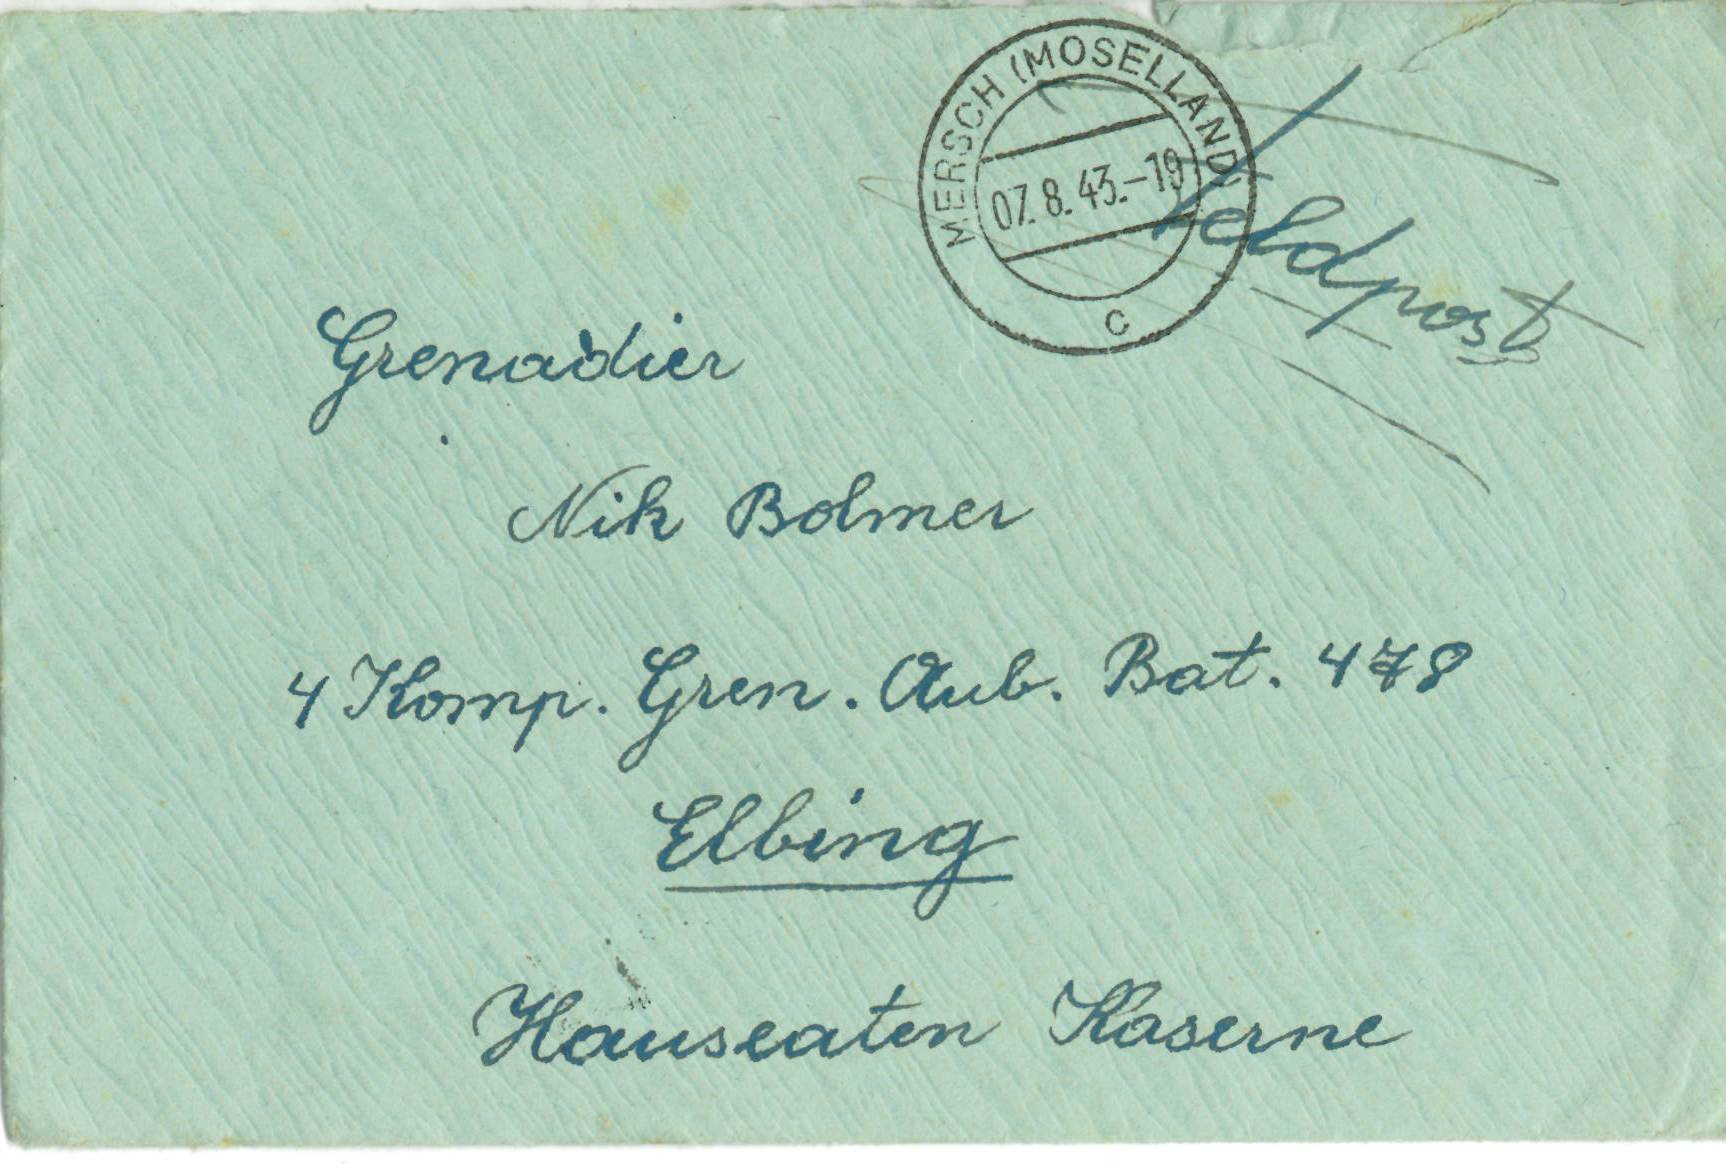 MERSCH (MOSELLAND)
07.8.43.-19
c
Feldpost
Grenadier
Nik Bolmer
4 Komp. Gren. Aub. Bat. 478
Elbing
Hauseaten Kaserne